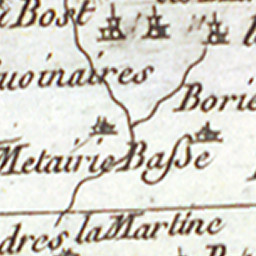 Bost
uoinaires
Borie
Metairie Baſſe
dres la Martine